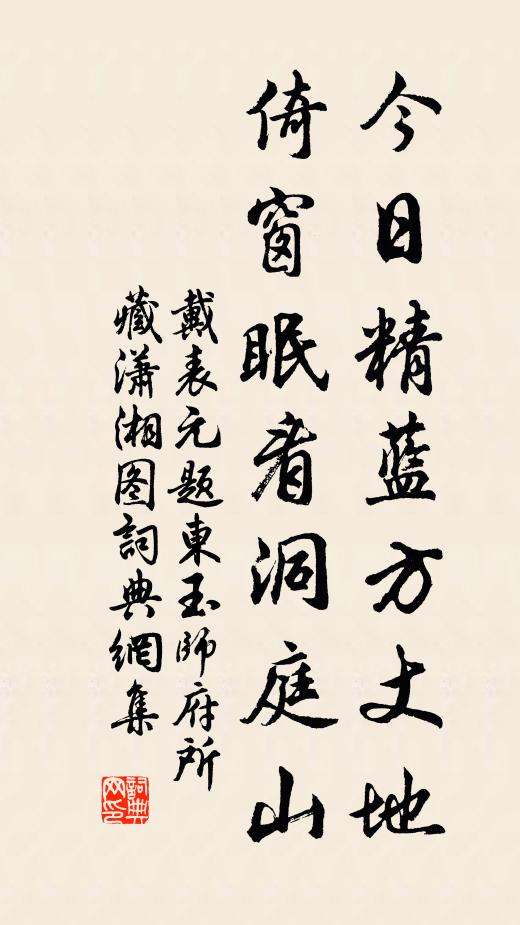 今日精藍方丈地
倚窗眠看洞庭山
戴表元題東玉師府所
藏瀟湘图詞典網集
詞典网印